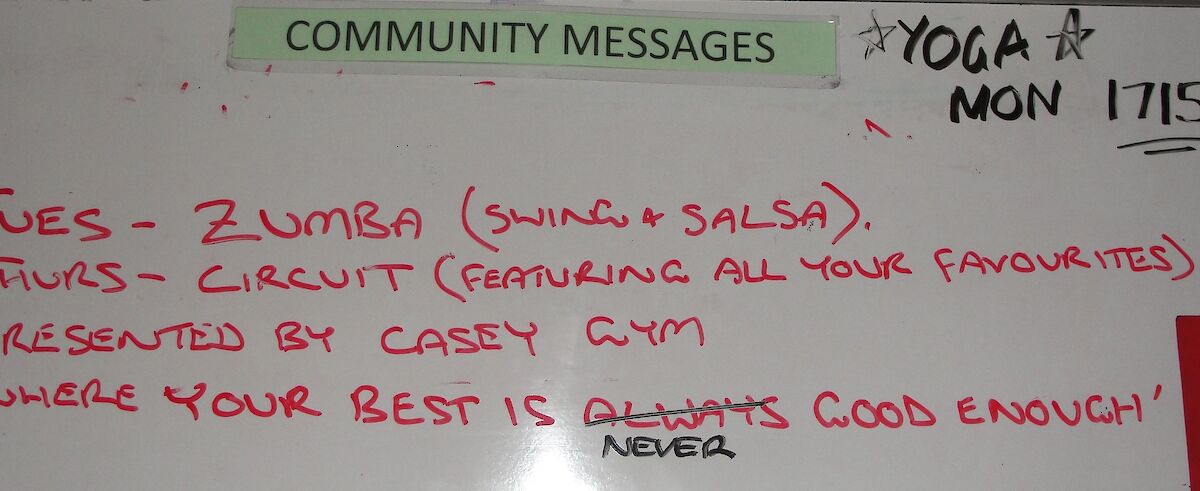 COMMUNITY MESSAGES
☆YOGA☆
MON 1715
TUES - ZUMBA (SWING & SALSA).
THURS - CIRCUIT (FEATURING ALL YOUR FAVOURITES)
PRESENTED BY CASEY GYM
WHERE YOUR BEST IS ALWAYS GOOD ENOUGH'
NEVER